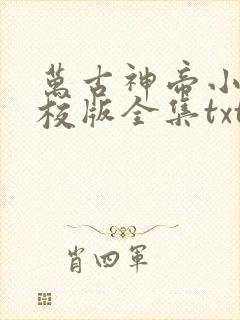 萬古神帝小
校版全集txt
肖四軍